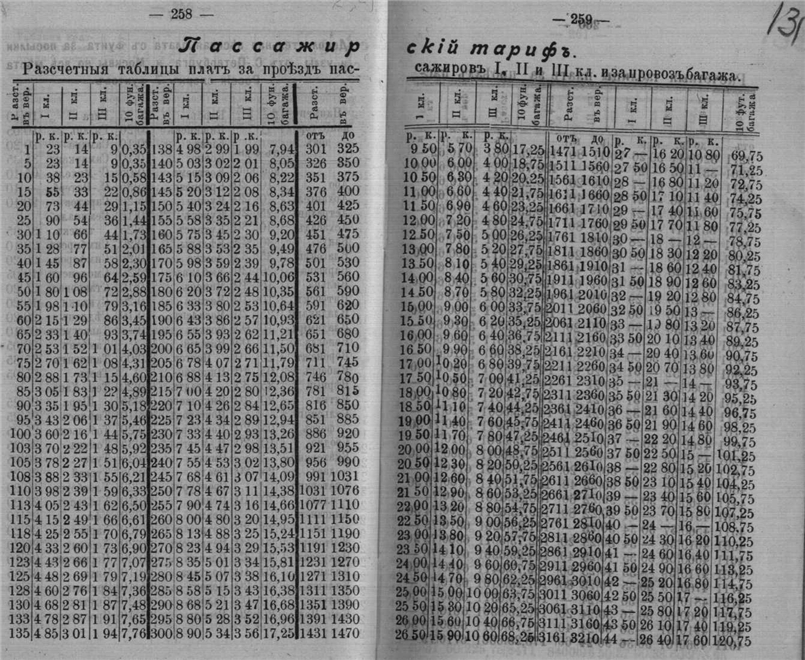 — 258 —
Пассажир
Разсчетныя таблицы платъ за проѣздъ пас-
Разст. въ вер. I кл. II кл. III кл. 10 фун. багажа. Разст. въ вер. I кл. II кл. III кл. 10 фун. багажа. Разст. въ вер.
р. к. р. к. р. к. р. к. р. к. р. к. отъ до
1 23 14 9 0,35 138 4 98 2 99 1 99 7,94 301 325
5 23 14 9 0,35 140 5 03 3 02 2 01 8,05 326 350
10 38 23 15 0,58 143 5 15 3 09 2 06 8,22 351 375
15 55 33 22 0,86 145 5 20 3 12 2 08 8,34 376 400
20 73 44 29 1,15 150 5 40 3 24 2 16 8,63 401 425
25 90 54 36 1,44 155 5 58 3 35 2 21 8,68 426 450
30 1 10 66 44 1,73 160 5 75 3 45 2 30 9,20 451 475
35 1 28 77 51 2,01 165 5 88 3 53 2 35 9,49 476 500
40 1 45 87 58 2,30 170 5 98 3 59 2 39 9,78 501 530
45 1 60 96 64 2,59 175 6 10 3 66 2 44 10,06 531 560
50 1 80 1 08 72 2,88 180 6 20 3 72 2 48 10,35 561 590
55 1 98 1 10 79 3,16 185 6 33 3 80 2 53 10,64 591 620
60 2 15 1 29 86 3,45 190 6 43 3 86 2 57 10,93 621 650
65 2 33 1 40 93 3,74 195 6 55 3 93 2 62 11,21 651 680
70 2 53 1 52 1 01 4,03 200 6 65 3 99 2 66 11,50 681 710
75 2 70 1 62 1 08 4,31 205 6 78 4 07 2 71 11,79 711 745
80 2 88 1 73 1 15 4,60 210 6 88 4 13 2 75 12,08 746 780
85 3 05 1 83 1 22 4,89 215 7 00 4 20 2 80 12,36 781 815
90 3 35 1 95 1 30 5,18 220 7 10 4 26 2 84 12,65 816 850
95 3 43 2 06 1 37 5,46 225 7 23 4 34 2 89 12,94 851 885
100 3 60 2 16 1 44 5,75 230 7 33 4 40 2 93 13,26 886 920
103 3 70 2 22 1 48 5,92 235 7 45 4 47 2 98 13,51 921 955
105 3 78 2 27 1 51 6,04 240 7 55 4 53 3 02 13,80 956 990
108 3 88 2 33 1 55 6,21 245 7 68 4 61 3 07 14,09 991 1031
110 3 98 2 39 1 59 6,33 250 7 78 4 67 3 11 14,38 1031 1076
113 4 05 2 43 1 62 6,50 255 7 90 4 74 3 16 14,66 1077 1110
115 4 15 2 49 1 66 6,61 260 8 00 4 80 3 20 14,95 1111 1150
118 4 25 2 55 1 70 6,79 265 8 13 4 88 3 25 15,24 1151 1190
120 4 33 2 60 1 73 6,90 270 8 23 4 94 3 29 15,53 1191 1230
123 4 43 2 66 1 77 7,07 275 8 35 5 01 3 34 15,81 1231 1270
125 4 48 2 69 1 79 7,19 280 8 45 5 07 3 38 16,10 1271 1310
128 4 60 2 76 1 84 7,36 285 8 58 5 15 3 43 16,38 1311 1350
130 4 68 2 81 1 87 7,48 290 8 68 5 21 3 47 16,68 1351 1390
133 4 78 2 87 1 91 7,65 295 8 80 5 28 3 52 16,96 1391 1430
135 4 85 3 01 1 94 7,76 300 8 90 5 34 3 56 17,25 1431 1470
— 259 —
131
скій тарифъ.
сажировъ I, II и III кл. и за провозъ багажа.
I кл. II кл. III кл. 10 фун. багажа. Разст. въ вер. I кл. II кл. III кл. 10 фут. багажа.
р. к. р. к. р. к. отъ до р. к. р. к. р. к.
9 50 5 70 3 80 17,25 1471 1510 27 — 16 20 10 80 69,75
10 00 6 00 4 00 18,75 1511 1560 27 50 16 50 11 — 71,25
10 50 6 30 4 20 20,25 1561 1610 28 — 16 80 11 20 72,75
11 00 6 60 4 40 21,75 1611 1660 28 50 17 10 11 40 74,25
11 50 6 90 4 60 23,25 1661 1710 29 — 17 40 11 60 75,75
12 00 7 20 4 80 24,75 1711 1760 29 50 17 70 11 80 77,25
12 50 7 50 5 00 26,25 1761 1810 30 — 18 — 12 — 78,75
13 00 7 80 5 20 27,75 1811 1860 30 50 18 30 12 20 80,25
13 50 8 10 5 40 29,25 1861 1910 31 — 18 60 12 40 81,75
14 00 8 40 5 60 30,75 1911 1960 31 50 18 90 12 60 83,25
14 50 8 70 5 80 32,25 1961 2010 32 — 19 20 12 80 84,75
15 00 9 00 6 00 33,75 2011 2060 32 50 19 50 13 — 86,25
15 50 9 30 6 20 35,25 2061 2110 33 — 19 80 13 20 87,75
16 00 9 60 6 40 36,75 2111 2160 33 50 20 10 13 40 89,25
16 50 9 90 6 60 38,25 2161 2210 34 — 20 40 13 60 90,75
17 00 10 20 6 80 39,75 2211 2260 34 50 20 70 13 80 92,25
17 50 10 50 7 00 41,25 2261 2310 35 — 21 — 14 — 93,75
18 00 10 80 7 20 42,75 2311 2360 35 50 21 30 14 20 95,25
18 50 11 10 7 40 44,25 2361 2410 36 — 21 60 14 40 96,75
19 00 11 40 7 60 45,75 2411 2460 36 50 21 90 14 60 98,25
19 50 11 70 7 80 47,25 2461 2510 37 — 22 20 14 80 99,75
20 00 12 00 8 00 48,75 2511 2560 37 50 22 50 15 — 101,25
20 50 12 30 8 20 50,25 2561 2610 38 — 22 80 15 20 102,75
21 00 12 60 8 40 51,75 2611 2660 38 50 23 10 15 40 104,25
21 50 12 90 8 60 53,25 2661 2710 39 — 23 40 15 60 105,75
22 00 13 20 8 80 54,75 2711 2760 39 50 23 70 15 80 107,25
22 50 13 50 9 00 56,25 2761 2810 40 — 24 — 16 — 108,75
23 00 13 80 9 20 57,75 2811 2860 40 50 24 30 16 20 110,25
23 50 14 10 9 40 59,25 2861 2910 41 — 24 60 16 40 111,75
24 00 14 40 9 60 60,75 2911 2960 41 50 24 90 16 60 113,25
24 50 14 70 9 80 62,25 2961 3010 42 — 25 20 16 80 114,75
25 00 15 00 10 00 63,75 3011 3060 42 50 25 50 17 — 116,25
25 50 15 30 10 20 65,25 3061 3110 43 — 25 80 17 20 117,75
26 00 15 60 10 40 66,75 3111 3160 43 50 26 10 17 40 119,25
26 50 15 90 10 60 68,25 3161 3210 44 — 26 40 17 60 120,75